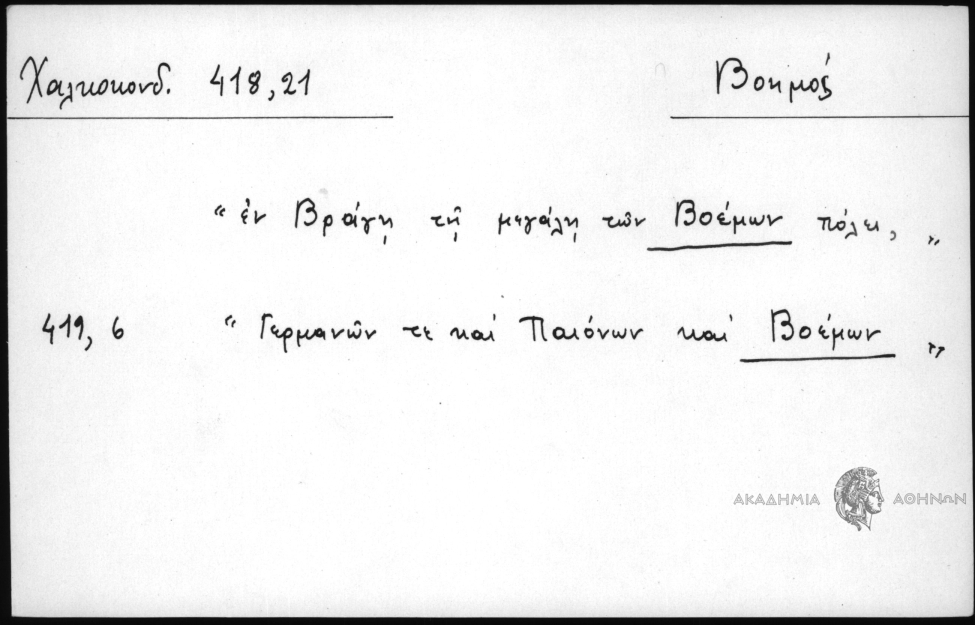 Χαλκοκονδ. 418,21 Βοημός
“ ἐν Βράγῃ τῇ μεγάλῃ τῶν Βοέμων πόλει, „
419, 6 “ Γερμανῶν τε καί Παιόνων καί Βοέμων „
ΑΚΑΔΗΜΙΑ ΑΘΗΝΩΝ